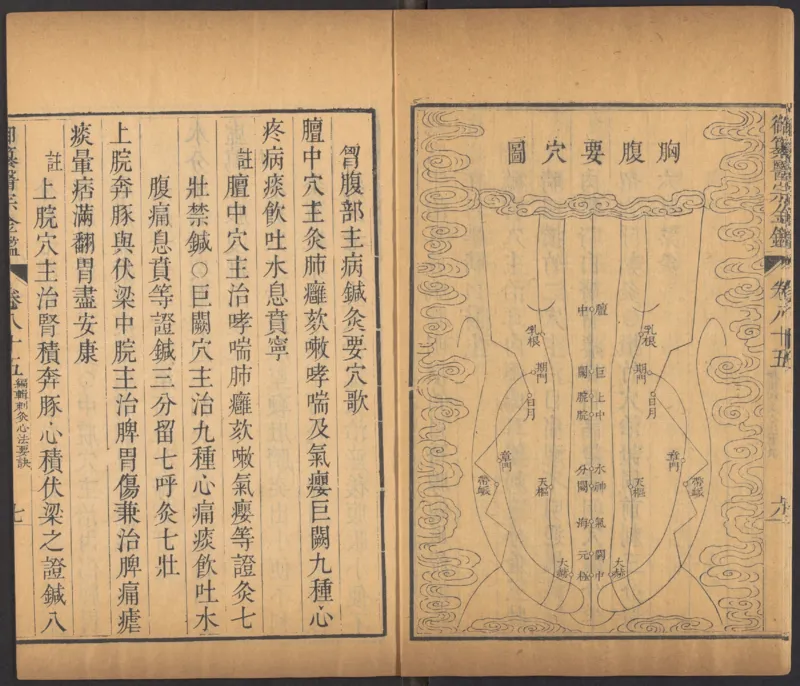 御纂醫宗金鑑 卷八十五
胸腹要穴圖
膻中
乳根
乳根
期門
期門
巨闕
日月
日月
上脘
中脘
章門
章門
水分
帶脈
帶脈
神闕
天樞
天樞
氣海
關元
大赫
大赫
中極
胷腹部主病鍼灸要穴歌
膻中穴主灸肺癰欬嗽哮喘及氣癭巨闕九種心
疼病痰飲吐水息賁寧
註膻中穴主治哮喘肺癰欬嗽氣癭等證灸七
壯禁鍼○巨闕穴主治九種心痛痰飲吐水
腹痛息賁等證鍼三分留七呼灸七壯
上脘奔豚與伏梁中脘主治脾胃傷兼治脾痛瘧
痰暈痞滿翻胃盡安康
註上脘穴主治腎積奔豚心積伏梁之證鍼八
御纂醫宗金鑑 卷八十五 編輯刺灸心法要訣 七